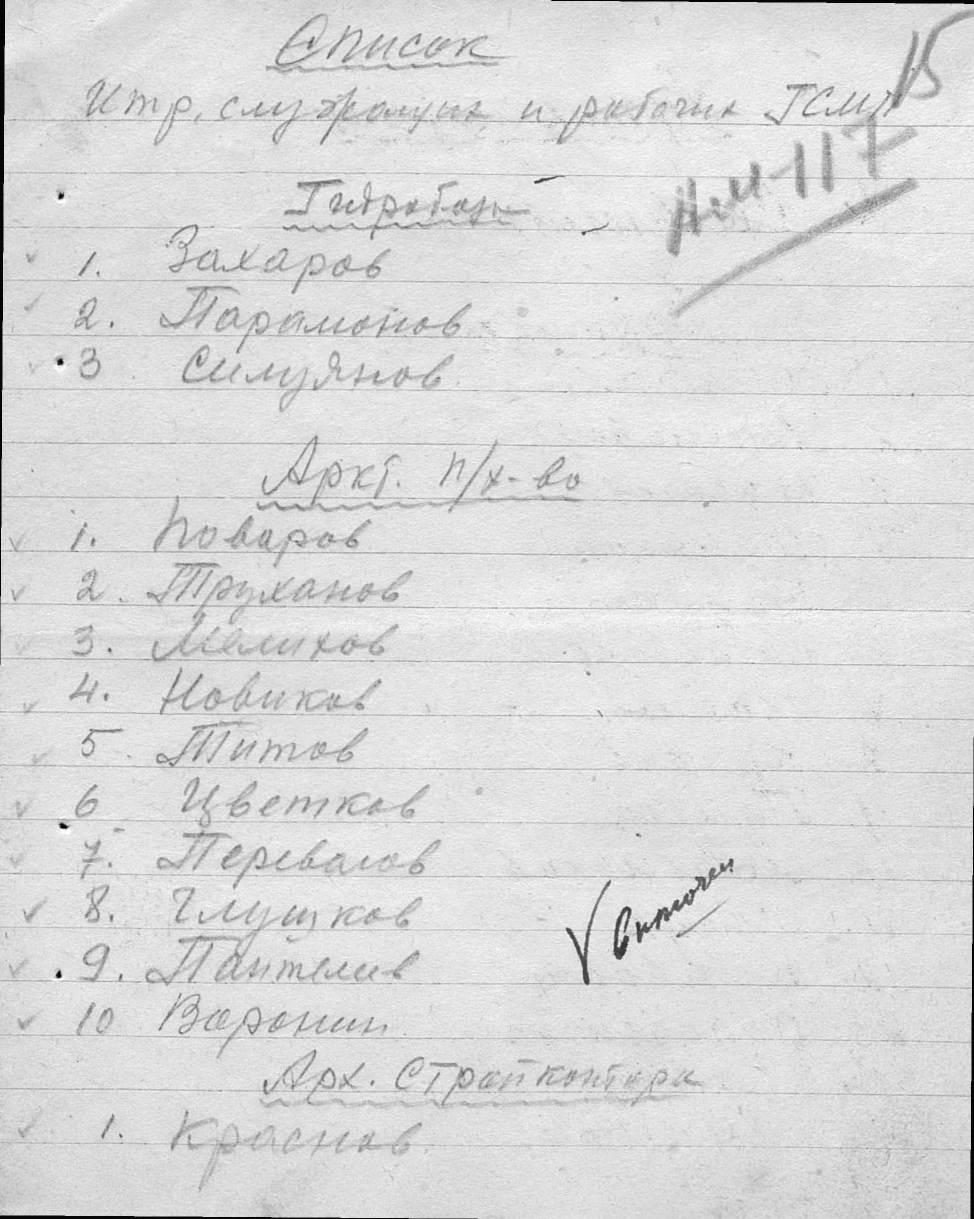 Список
15
Итр, служащих и рабочих ГСМП
Гидробазы
1. Захаров
2. Парамонов
3 Силуянов
Аркт. п/х-во
1. Поваров
2. Труханов
3. Мелихов
4. Новиков
5. Титов
6 Цветков
7. Перевалов
8. Глушков
9. Пантелив
10 Воронин
Арх. Стройконтора
1. Краснов